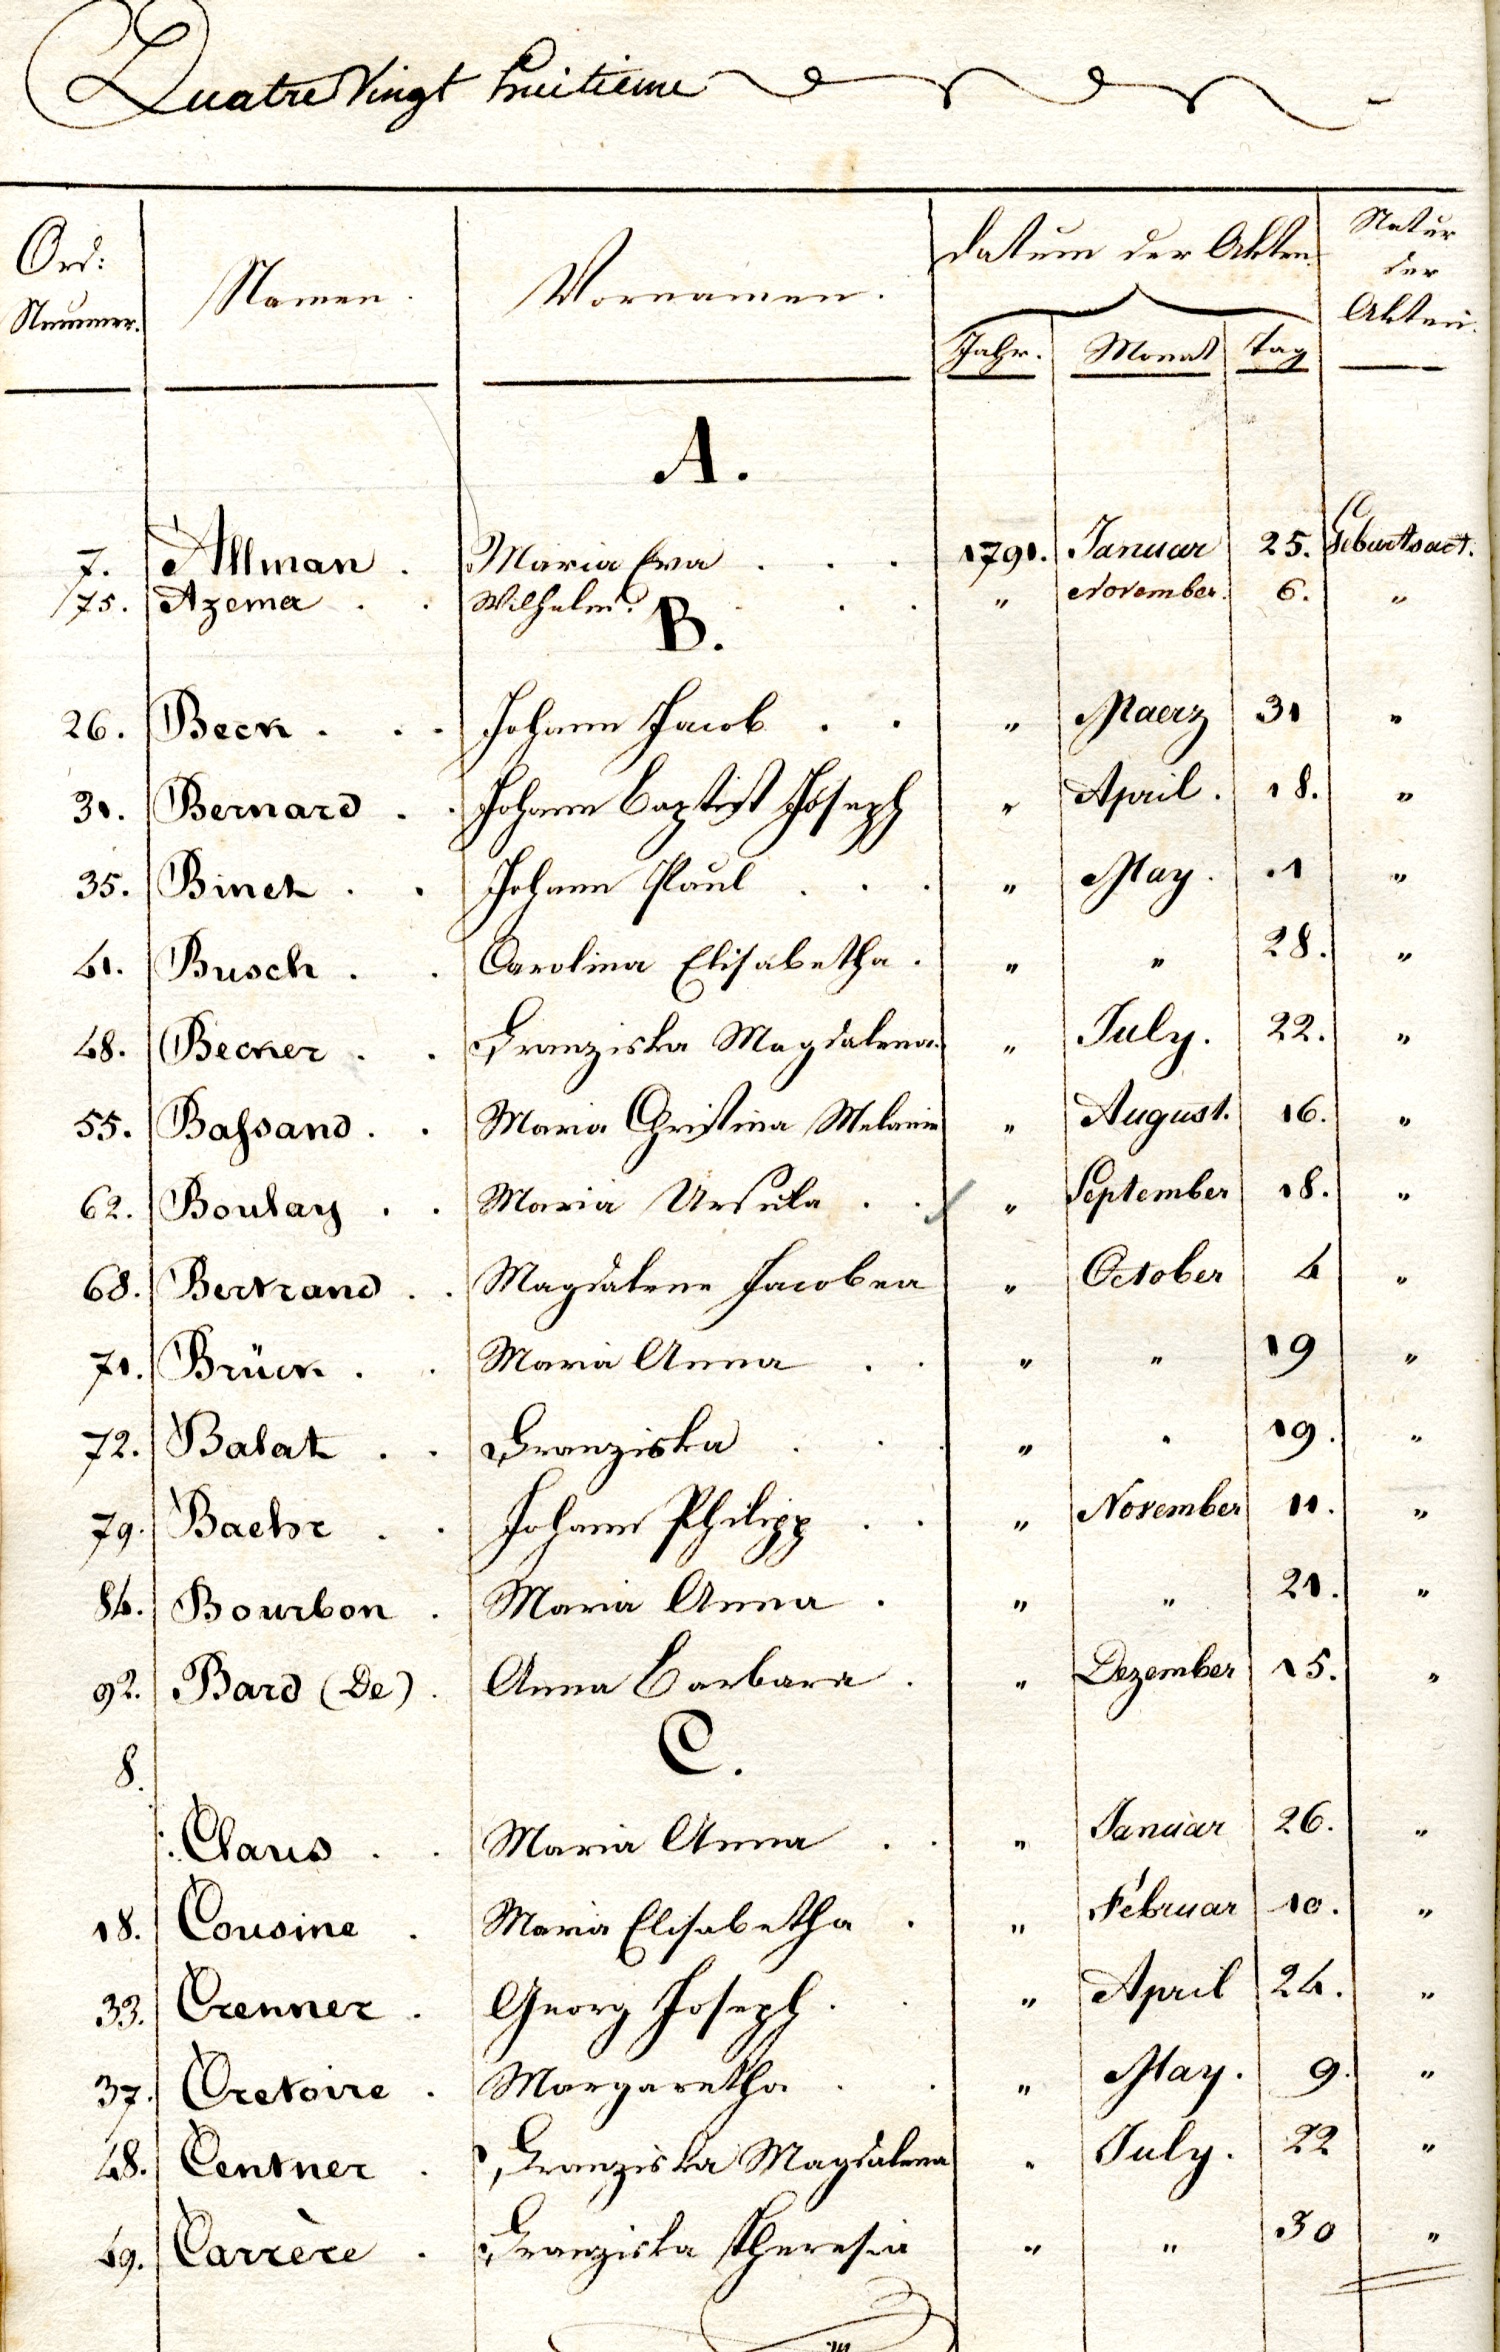 Quatre Vingt huitieme
Ord: Nummer. Namen. Vornamen. Datum der Akten Natur der Akten.
Jahr. Monat Tag
A.
7. Allman . Maria Eva . . . 1791. Januar 25. Geburtsact.
75. Azema . . Wilhelm. . . " November. 6. "
B.
26. Beck . . . Johann Jacob . . " Maerz 31 "
31. Bernard . . Johann Baptist Joseph " April . 18. "
35. Binet . . Johann Paul . . . " May . 1 "
41. Busch . . Carolina Elisabetha . " " 28. "
48. Becker . . Franziska Magdalena. " July . 22. "
55. Baſsand . . Maria Christina Melanie " August. 16. "
62. Boulay . . Maria Ursula . . " September 18. "
68. Bertrand . . Magdalena Jacobea " October 4 "
71. Brück . . Maria Anna . . " " 19 "
72. Balat . . Franziska . . . " " 19. "
79. Baehr . . Johann Philipp . . " November 11. "
84. Bourbon . Maria Anna . " " 21. "
92. Bard (De) . Anna Barbara . " Dezember 15. "
C.
8.
Claus . . Maria Anna . . " Januar 26. "
18. Cousine . Maria Elisabetha . " Februar 10. "
33. Crenner . Georg Joseph . . " April 24. "
37. Cretoire . Margaretha . . " May . 9. "
48. Centner . Franziska Magdalena " July . 22 "
49. Carrère . Franziska Theresia " " 30 "